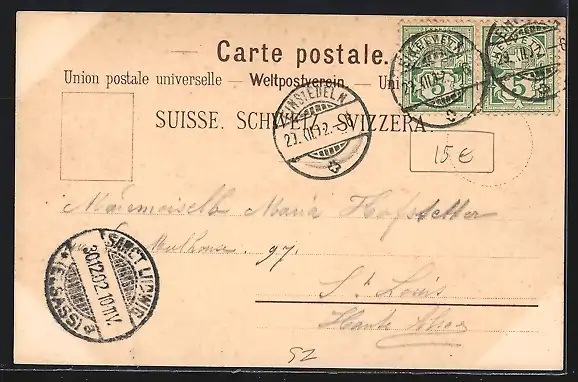 Carte postale.
Union postale universelle — Weltpostverein — Uni
SUISSE. SCHWEIZ. SVIZZERA.
EINSIEDELN
5 5
15 €
Mademoiselle Maria Hofstetter
Mulhouse 97
St Louis
Haute Alsace
SANCT LUDWIG
30.12.02
(ELSASS)
SZ